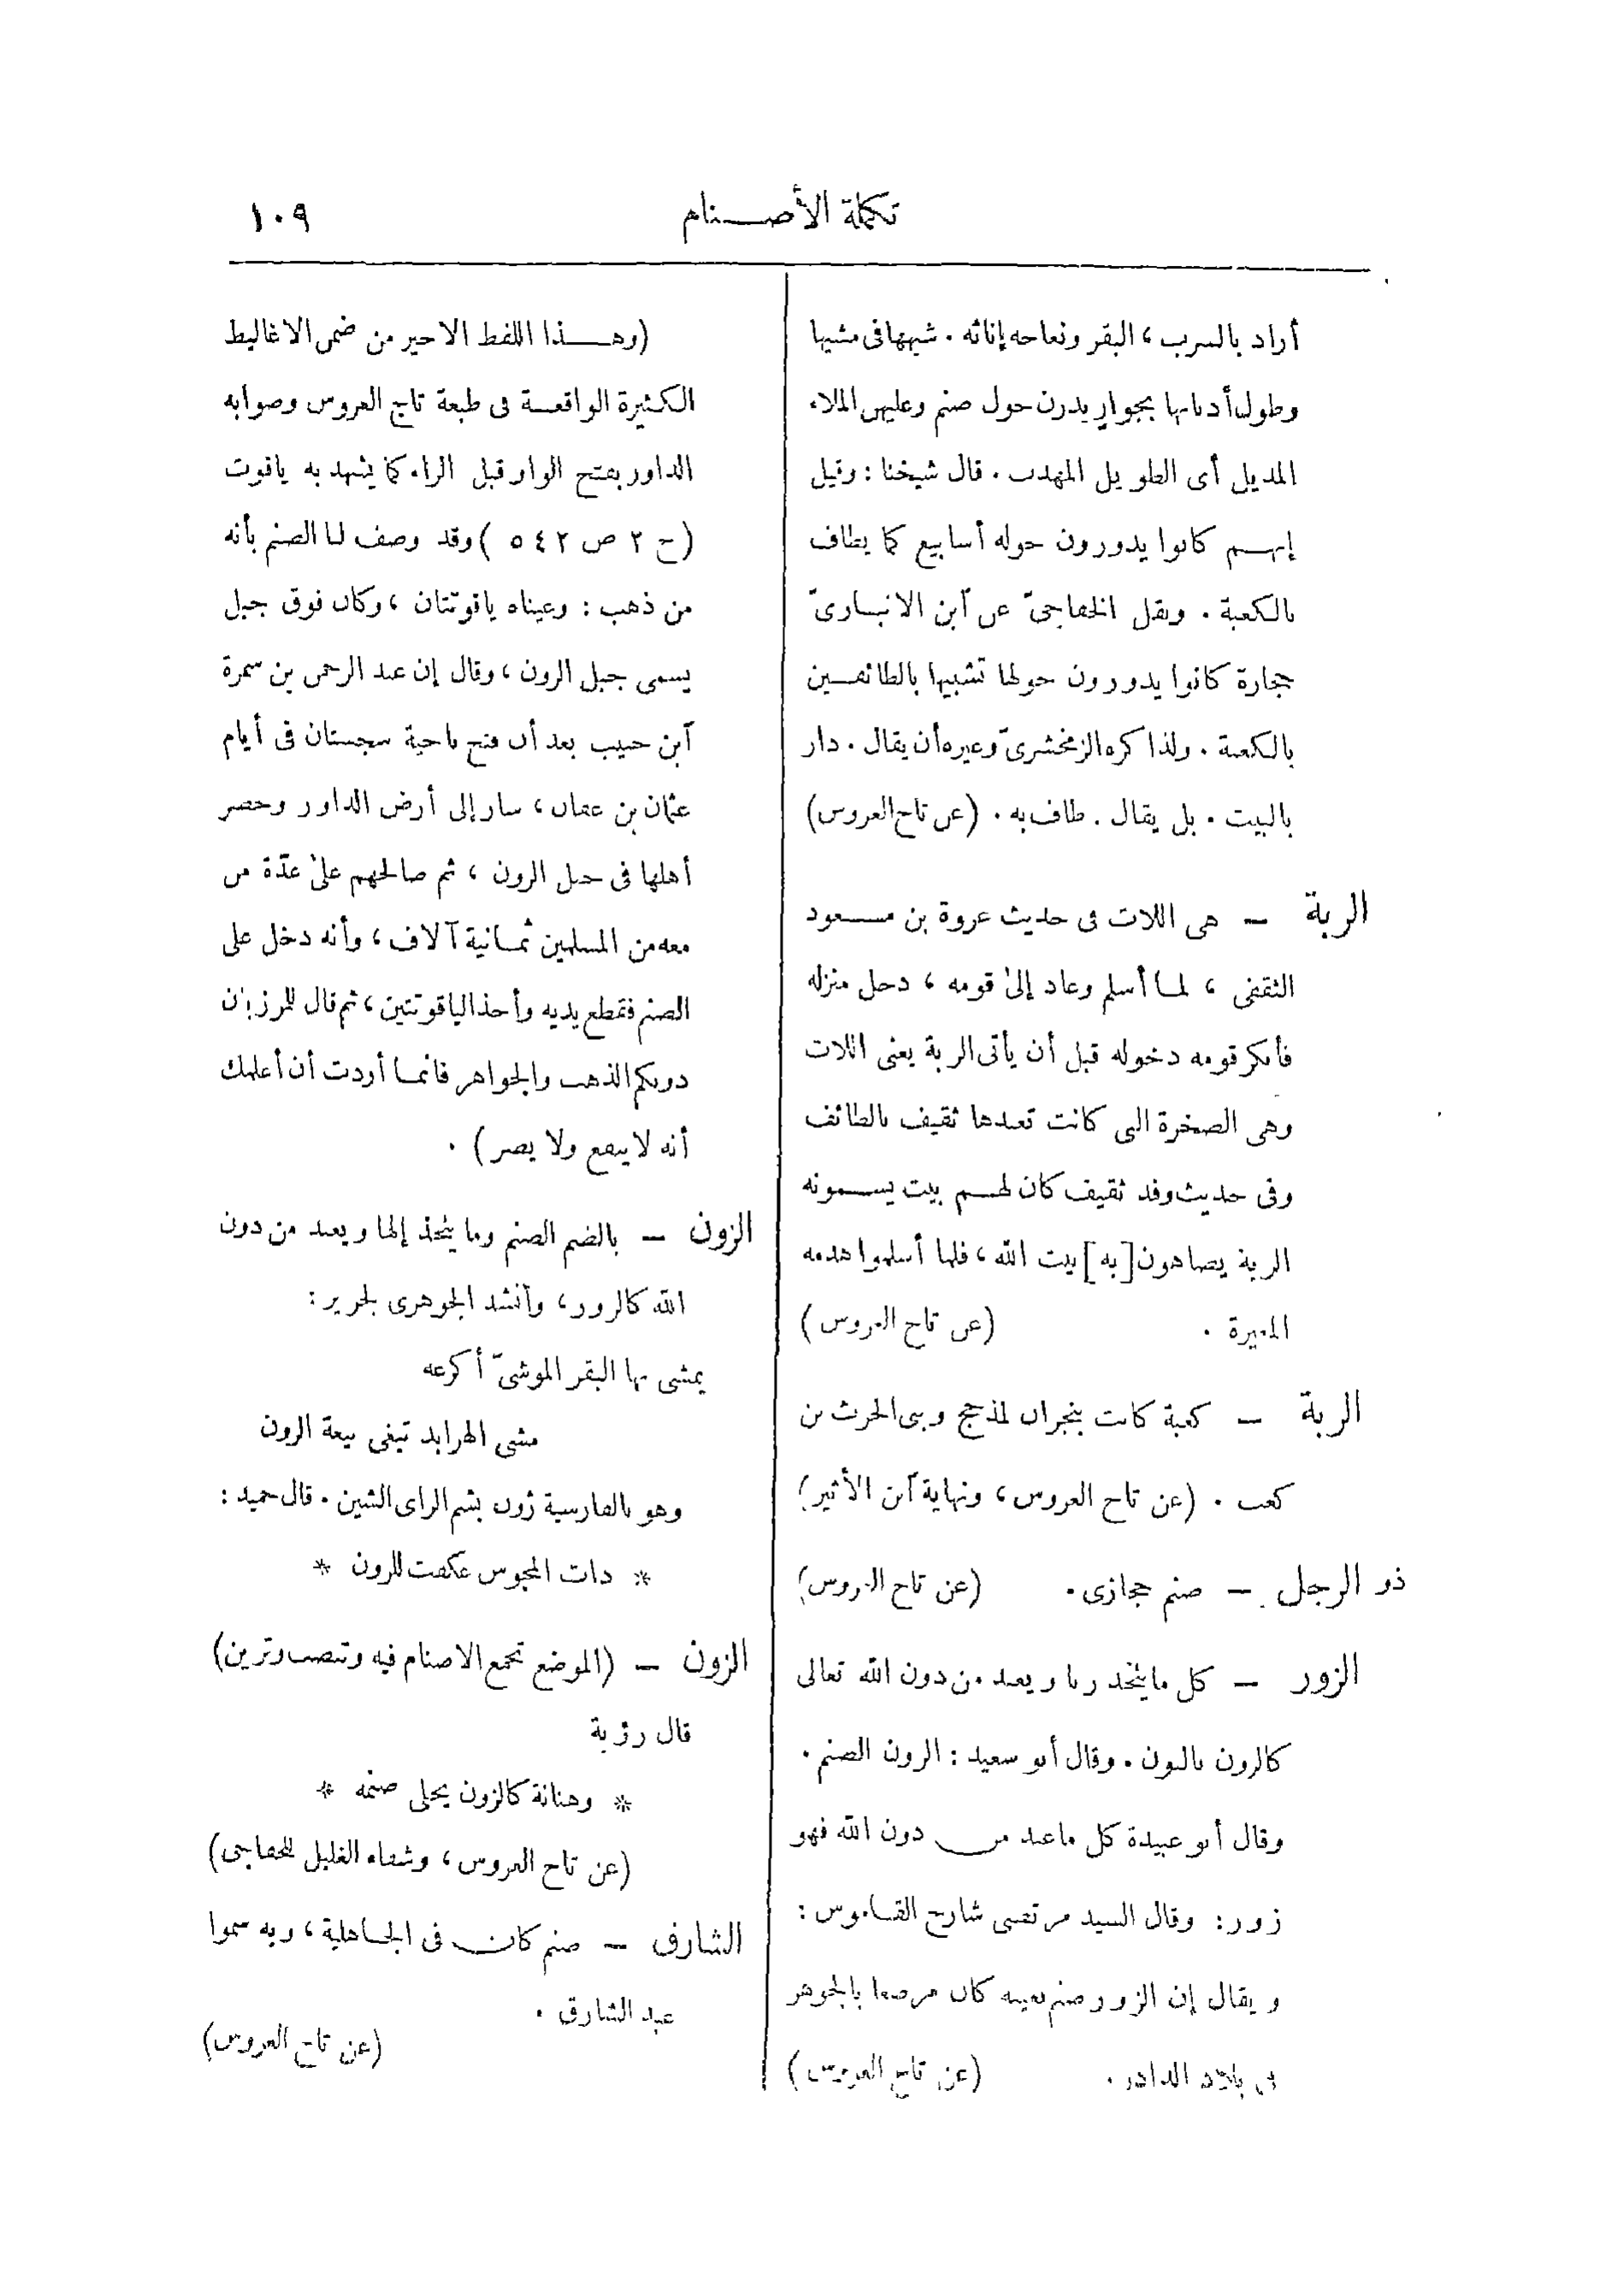 تكملة الأصنام
١٠٩
أراد بالسرب، البقر ونعاجه إناثه. شبهها فى مشيها
وطول أذنابها بجوارٍ يدرن حول صنم وعليهن الملاء
المذيل أى الطويل المهدب. قال شيخنا: وقيل
إنهم كانوا يدورون حوله أسابيع كما يطاف
بالكعبة. ونقل الخفاجىّ عن آبن الانبارىّ
حجارة كانوا يدورون حولها تشبيها بالطائفين
بالكعبة. ولذا كره الزمخشرىّ وغيره أن يقال. دار
بالبيت. بل يقال. طاف به. (عن تاج العروس)
الربة — هى اللات فى حديث عروة بن مسعود
الثقفى، لما أسلم وعاد إلىٰ قومه، دخل منزله
فأنكر قومه دخوله قبل أن يأتى الربة يعنى اللات
وهى الصخرة التى كانت تعبدها ثقيف بالطائف
وفى حديث وفد ثقيف كان لهم بيت يسمونه
الربة يضاهون [به] بيت الله، فلما أسلموا هدمه
المغيرة. (عن تاج العروس)
الربة — كعبة كانت بنجران لمذحج وبنى الحرث بن
كعب. (عن تاج العروس، ونهاية آبن الأثير)
ذو الرجل — صنم حجازى. (عن تاج العروس)
الزور — كل ما يتخذ ربا ويعبد من دون الله تعالى
كالزون بالنون. وقال أبو سعيد: الزون الصنم.
وقال أبو عبيدة كل ما عبد من دون الله فهو
زور: وقال السيد مرتضى شارح القاموس:
ويقال إن الزور صنم بعينه كان مرصعا بالجوهر
فى بلاد الدادر. (عن تاج العروس)
(وهذا اللفظ الاخير من ضمن الاغاليط
الكثيرة الواقعة فى طبعة تاج العروس وصوابه
الداور بفتح الواو قبل الراء كما يشهد به ياقوت
(ج ٢ ص ٥٤٢) وقد وصف لنا الصنم بأنه
من ذهب: وعيناه ياقوتتان، وكان فوق جبل
يسمى جبل الزون، وقال إن عبد الرحمن بن سمرة
آبن حبيب بعد أن فتح ناحية سجستان فى أيام
عثمان بن عفان، سار إلى أرض الداور وحصر
أهلها فى جبل الزون، ثم صالحهم علىٰ عدّة من
معه من المسلمين ثمانية آلاف، وأنه دخل على
الصنم فقطع يديه وأخذ الياقوتتين، ثم قال للمرزبان
دونكم الذهب والجواهر فانما أردت أن أعلمك
أنه لا ينفع ولا يضر).
الزون — بالضم الصنم وما يتخذ إلها ويعبد من دون
الله كالزور، وأنشد الجوهرى لجرير:
يمشى بها البقر الموشىّ أكرعه
مشى الهرابذ تبغى بيعة الزون
وهو بالفارسية ژون بشم الزاى الشين. قال حميد:
* ذات المجوس عكفت للزون *
الزون — (الموضع تجمع الاصنام فيه وتنصب وتزين)
قال رؤبة
* وهنانة كالزون يجلى صنمه *
(عن تاج العروس، وشفاء الغليل للخفاجى)
الشارق — صنم كان فى الجاهلية، وبه سموا
عبد الشارق.
(عن تاج العروس)